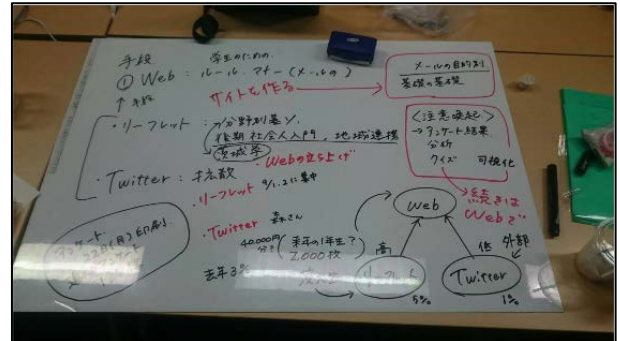 手段 学生のための
① Web：ルール・マナー（メールの）
↑手段 サイトを作る
メールの目的別
基礎の基礎
・リーフレット：
後期 社会人入門、地域連携
茨城学
・Webの立ち上げ
＜注意喚起＞
→アンケート結果
分析
クイズ 可視化
・Twitter：拡散
・リーフレット 9/1.2に集中
続きは
Webで
Web
・Twitter
40,000円
来年の1年生？
2,000枚
高
低 外部
去年3%
リーフレット
5%
Twitter
1%
アンケート